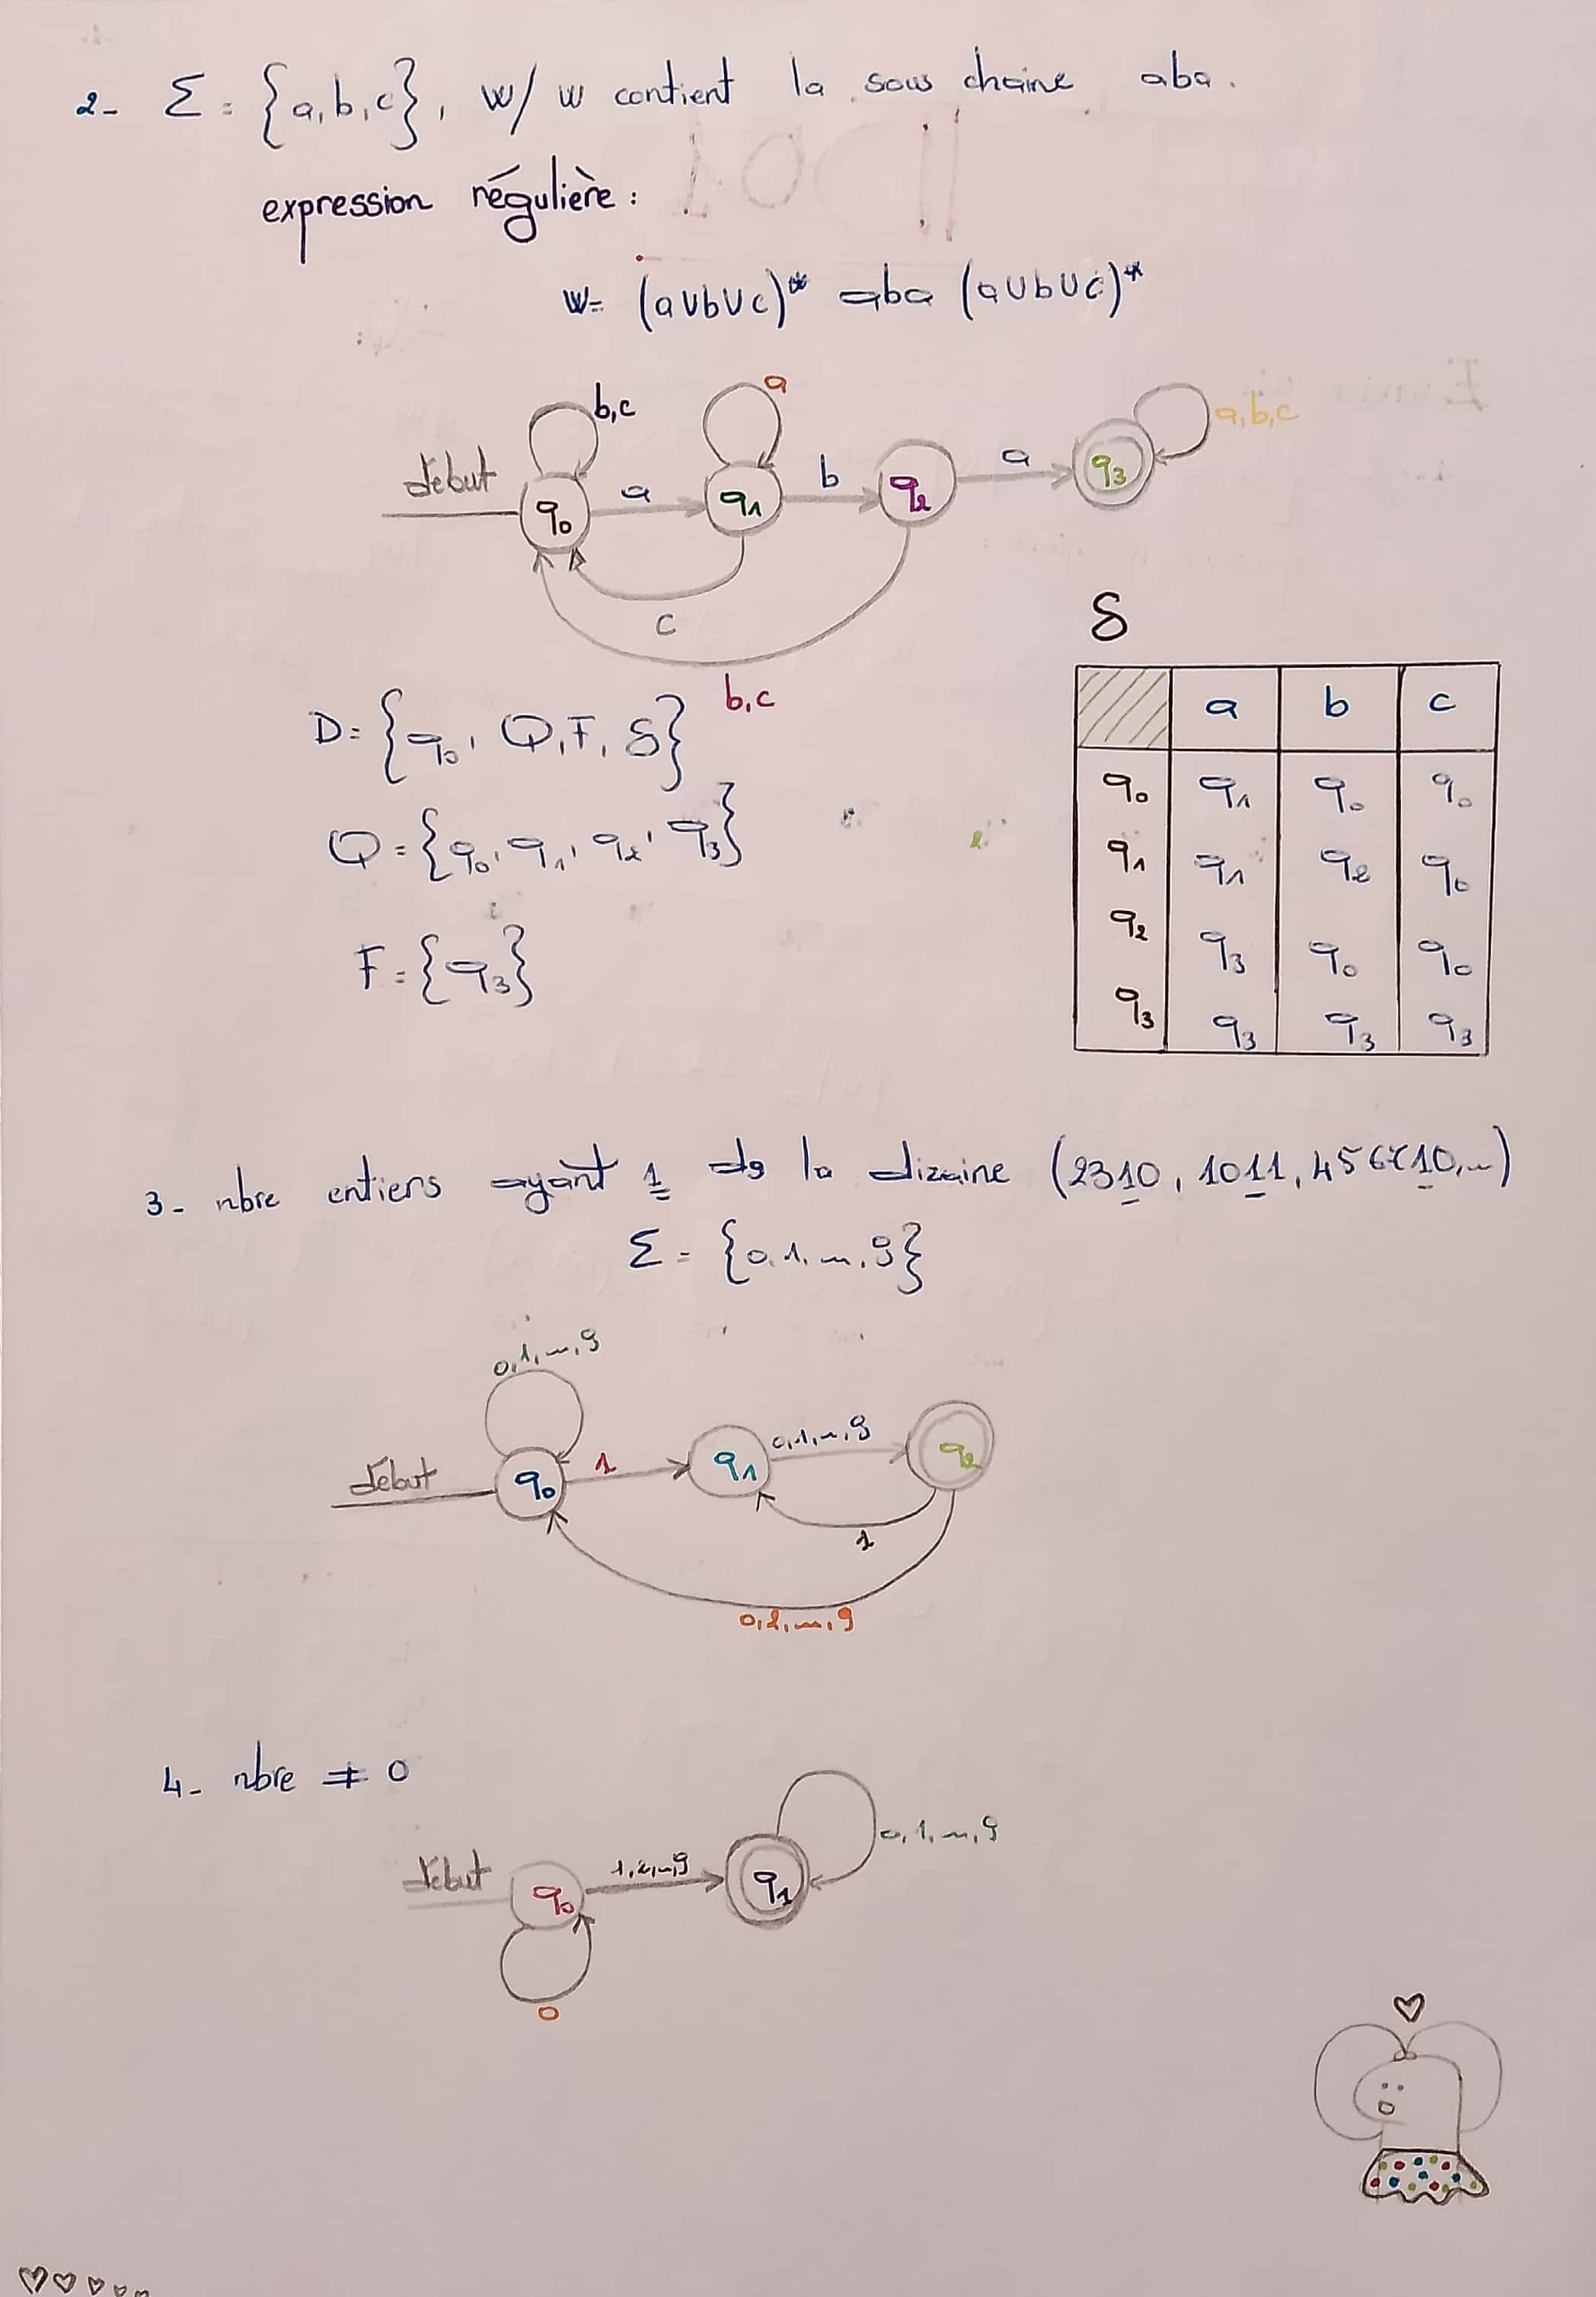 2- Σ = {a,b,c}, w/ w contient la sous chaine aba.
expression régulière :
w= (a∪b∪c)* aba (a∪b∪c)*
b,c a a,b,c
début q0 a q1 b q2 a q3
c
b,c
δ
D= {q0, Q,F, δ}
Q = {q0, q1, q2, q3}
F = {q3}
a b c
q0 q1 q0 q0
q1 q1 q2 q0
q2 q3 q0 q0
q3 q3 q3 q3
3- nbre entiers ayant 1 ds la dizaine (2310, 1011,
Σ = {0,1,...,9}
0,1,...,9
début q0 1 q1 0,1,...,9 q2
1
0,2,...,9
4- nbre ≠ 0
début q0 1,2,...,9 q1 0,1,...,9
0